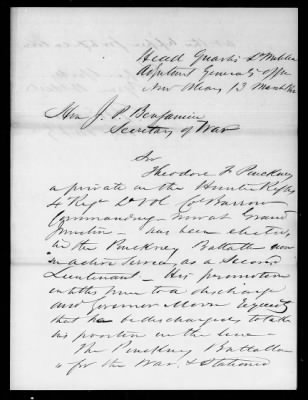 Head Quarters La Militia
Adjutant General's Office
New Orleans 13 March
Hon J. P. Benjamin
Secretary of War
Sir
Theodore F Puckney
a private in the Hunter Rifles
4 Regt La Vol Col Barrow
Commanding - now at Grand
Junction - has been elected
in the Pinckney Battalion now
in active Service as a Second
Lieutenant - His promotion
entitles him to a discharge
and Governor Moore requests
that he be discharged to take
his position in the line -
The Pinckney Battalion
is for the War, & Stationed